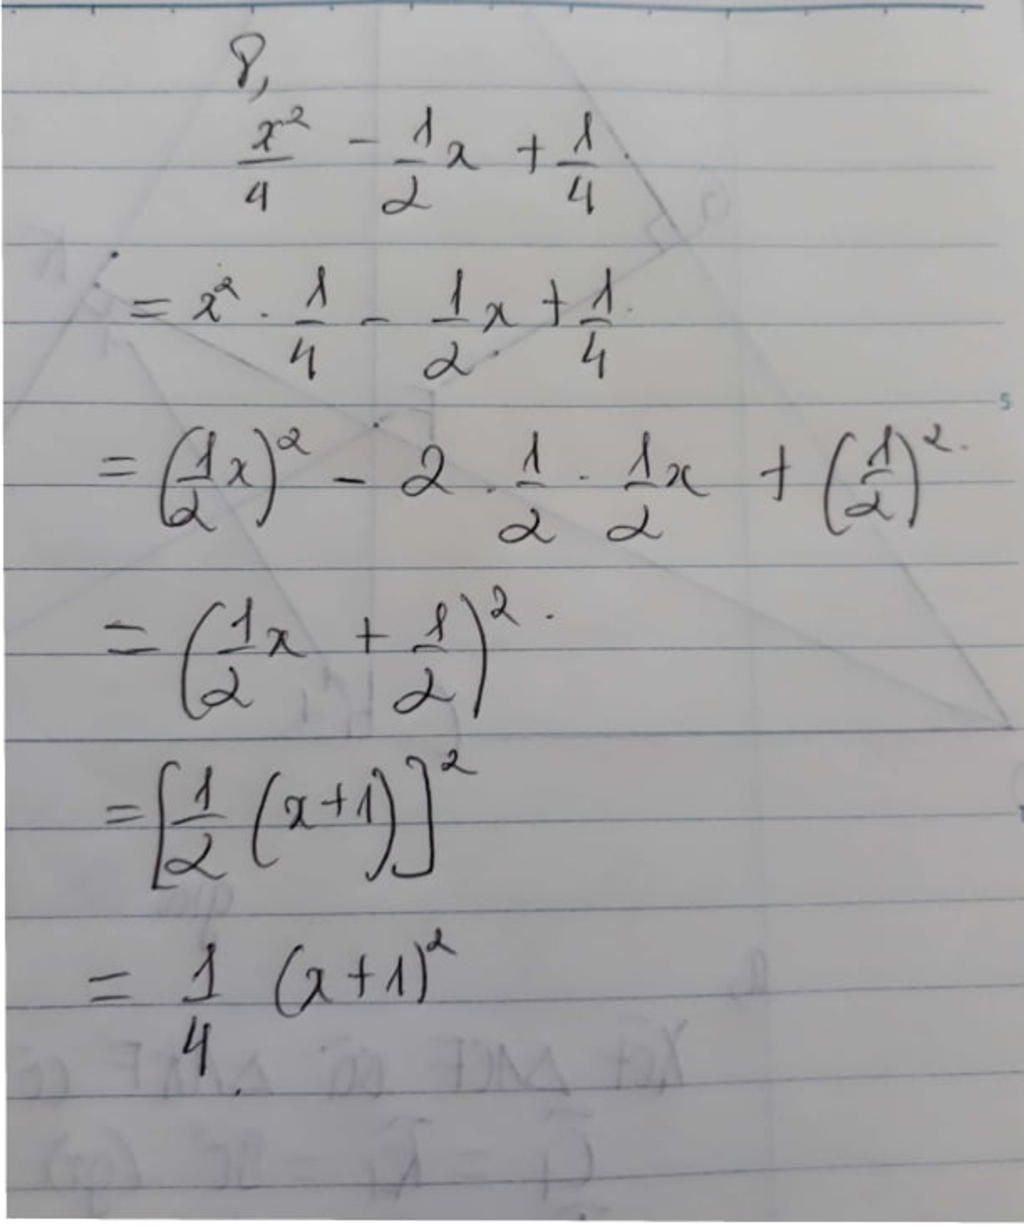 8,
x²/4 - 1/2 x + 1/4
= x² . 1/4 - 1/2 x + 1/4
= (1/2 x)² - 2 . 1/2 . 1/2 x + (1/2)²
= (1/2 x + 1/2)²
= [1/2 (x+1)]²
= 1/4 (x+1)²
5